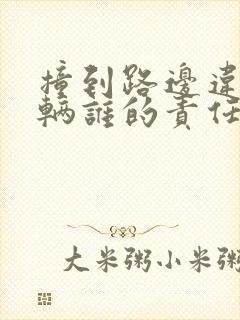 撞到路邊違
輛誰的責任
大米粥小米粥